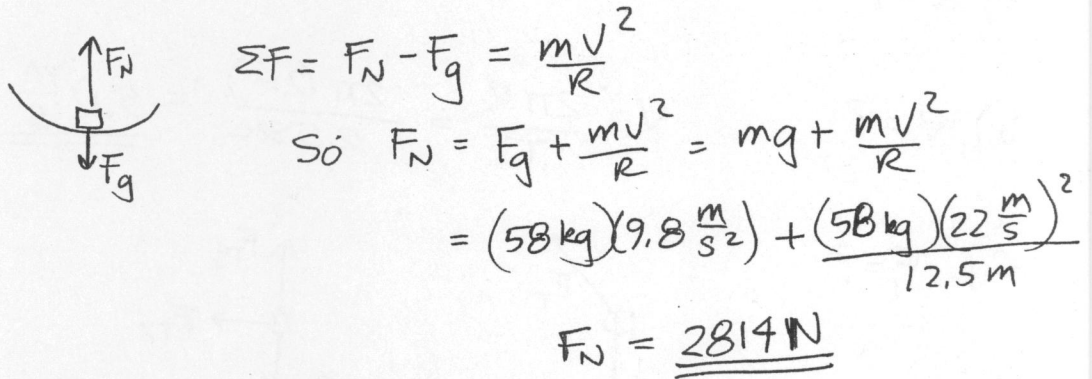 F_N
F_g
ΣF = F_N - F_g = mv²/R
So F_N = F_g + mv²/R = mg + mv²/R
= (58 kg)(9.8 m/s²) + (58 kg)(22 m/s)²/12.5 m
F_N = 2814 N